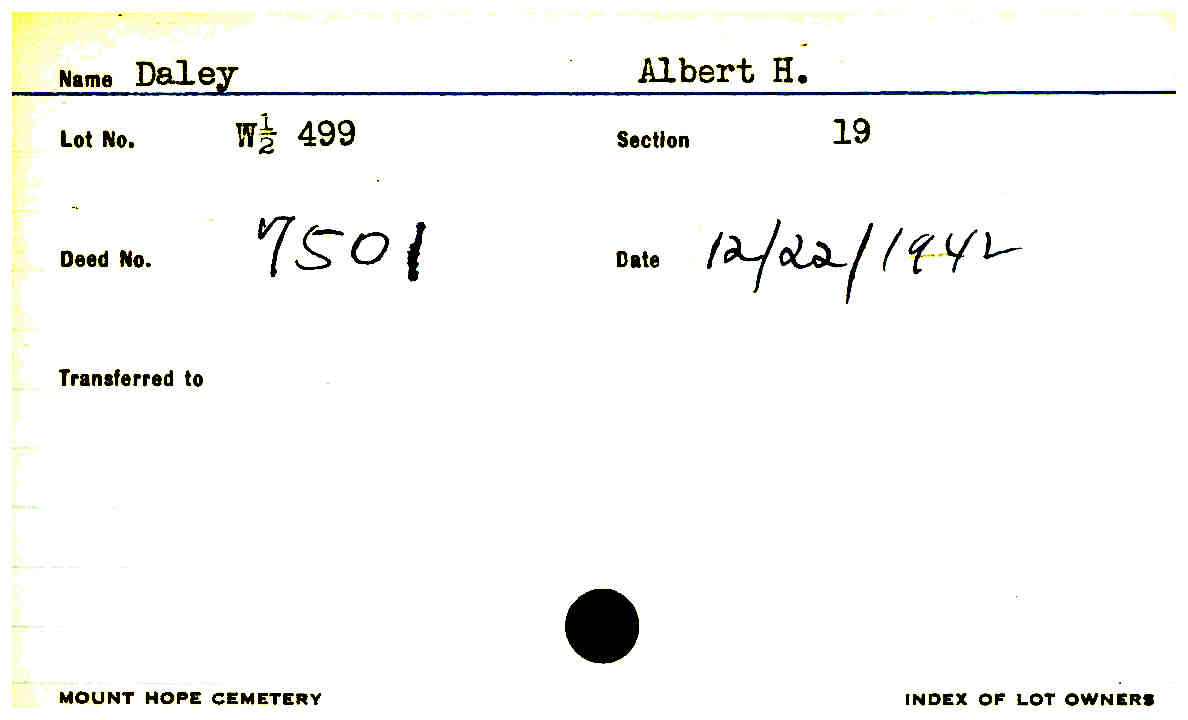 Name Daley Albert H.
Lot No. W½ 499 Section 19
Deed No. 7501 Date 12/22/1942
Transferred to
MOUNT HOPE CEMETERY INDEX OF LOT OWNERS